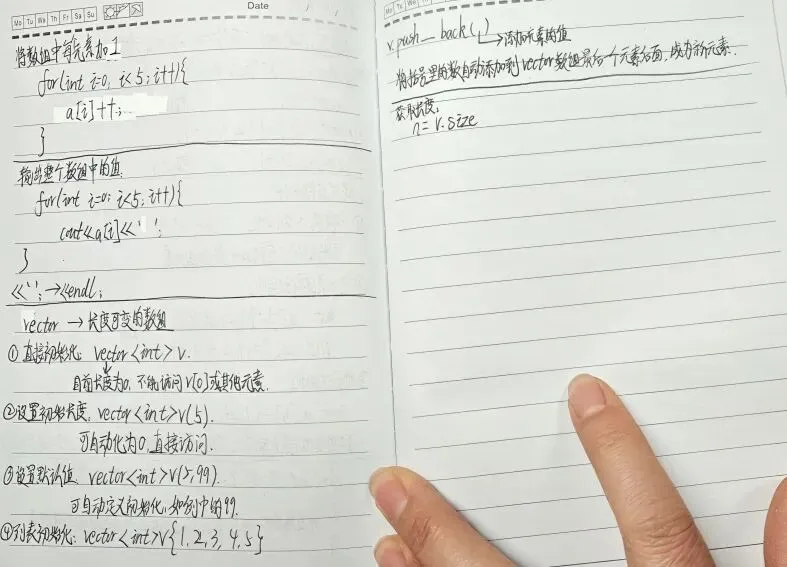 Mo Tu We Th Fr Sa Su
Date
将数组中每元素加1
for(int i=0; i<5; i++){
a[i]++;
}
输出整个数组中的值.
for(int i=0; i<5; i++){
cout<<a[i]<<' ';
}
<<' '; →<<endl;
vector → 长度可变的数组
① 直接初始化: vector<int> v.
目前长度为0, 不能访问v[0]或其他元素.
②设置初始长度. vector<int>v(5).
可自动化为0, 直接访问.
③设置默认值. vector<int>v(5,99).
可自动定义初始化, 如例中的99.
④列表初始化: vector<int>v{1,2,3,4,5}
Mo Tu We Th
v.push_back( )
→添加元素的值
将括号里的数自动添加到vector数组最后一个元素后面, 成为新元素.
获取长度.
n= v.size